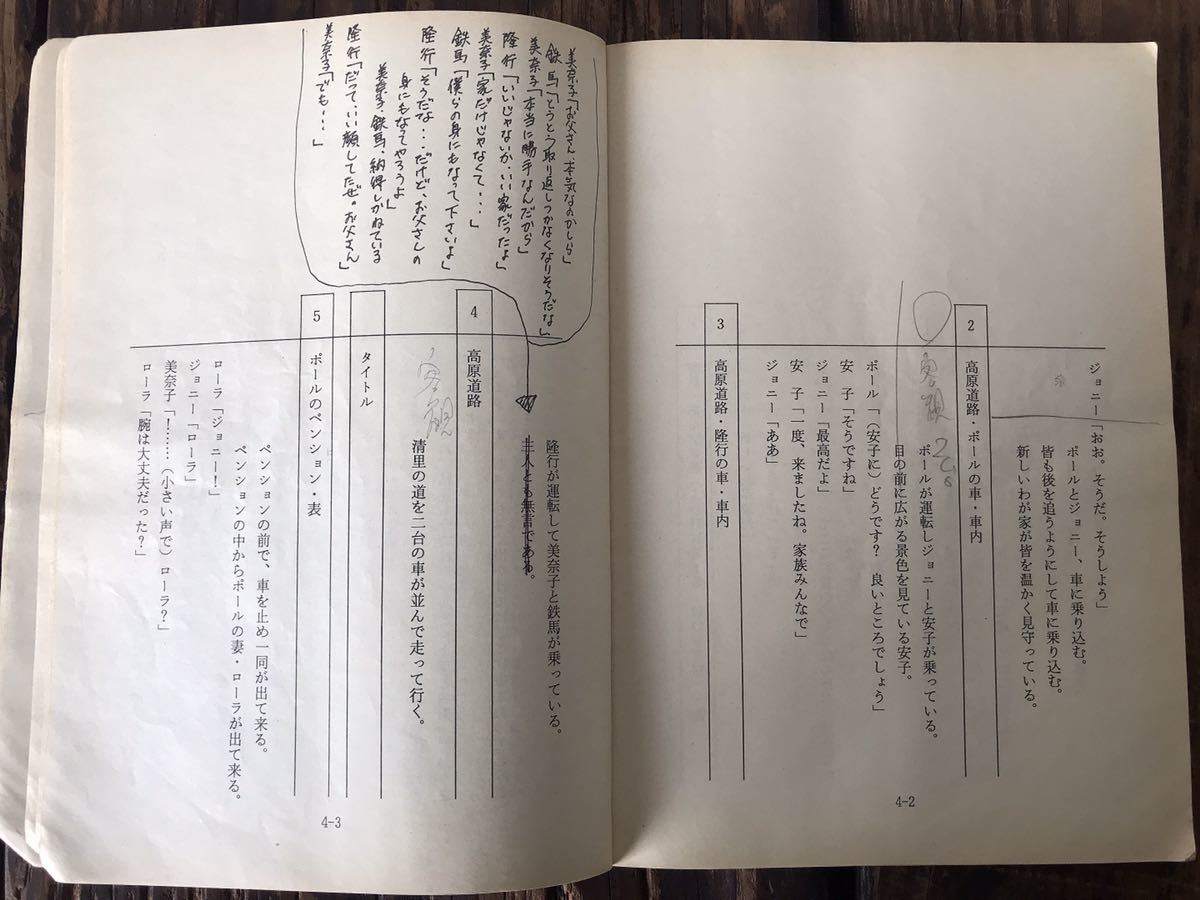 ジョニー「おお。そうだ。そうしよう」
ポールとジョニー、車に乗り込む。
皆も後を追うようにして車に乗り込む。
新しいわが家が皆を温かく見守っている。
2 高原道路・ポールの車・車内
客観
ポールが運転しジョニーと安子が乗っている。
目の前に広がる景色を見ている安子。
ポール「(安子に)どうです? 良いところでしょう」
安 子「そうですね」
ジョニー「最高だよ」
安 子「一度、来ましたね。家族みんなで」
ジョニー「ああ」
3 高原道路・隆行の車・車内
4-2
美奈子「お父さん、本気なのかしら」
鉄 馬「とうとう取り返しつかなくなりそうだな」
美奈子「本当に勝手なんだから」
隆 行「いいじゃないか、いい家だったよ」
美奈子「家だけじゃなくて・・・」
鉄 馬「僕らの身にもなって下さいよ」
隆 行「そうだな・・・だけど、お父さんの
身にもなってやろうよ」
美奈子、鉄馬、納得しかねている
隆 行「だって、いい顔してたぜ。お父さん」
美奈子「でも・・・」
隆行が運転して美奈子と鉄馬が乗っている。
三人とも無言である。
4 高原道路
客観
清里の道を二台の車が並んで走って行く。
タイトル
5 ポールのペンション・表
ペンションの前で、車を止め一同が出て来る。
ペンションの中からポールの妻・ローラが出て来る。
ローラ「ジョニー!」
ジョニー「ローラ」
美奈子「!……(小さい声で)ローラ?」
ローラ「腕は大丈夫だった?」
4-3